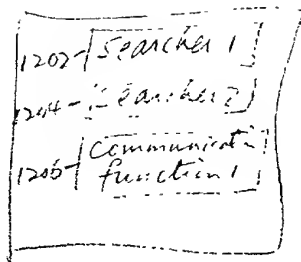 1202 - Searcher 1
1204 - Searcher 2
1206 - Communicati
function 1